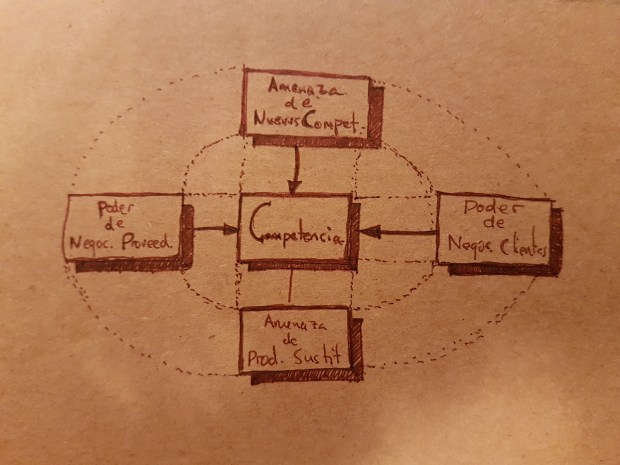 Amenaza
de
Nuevos Compet.
Poder
de
Negoc. Proveed.
Competencia
Poder
de
Negoc. Clientes
Amenaza
de
Prod. Sustit